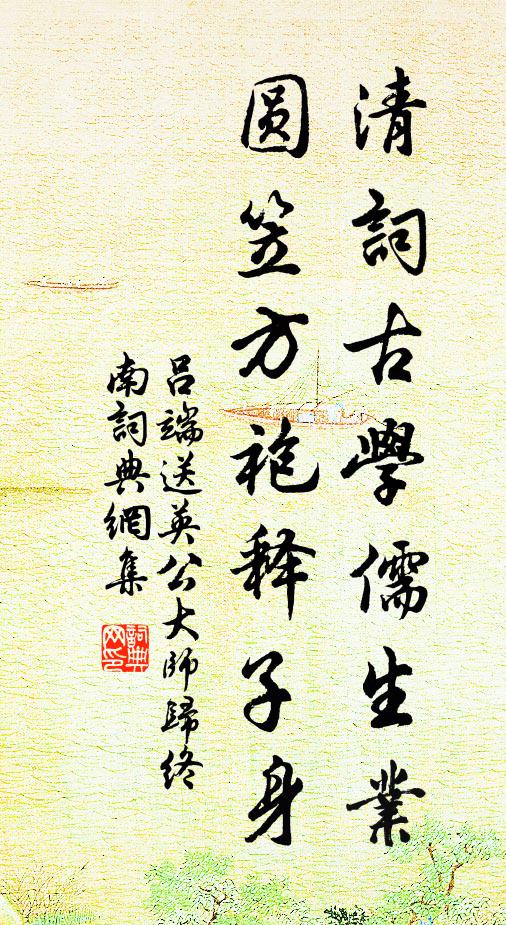 清詞古學儒生業
圆笠方袍释子身
吕端送英公大師歸终
南詞典網集
詞典
网印